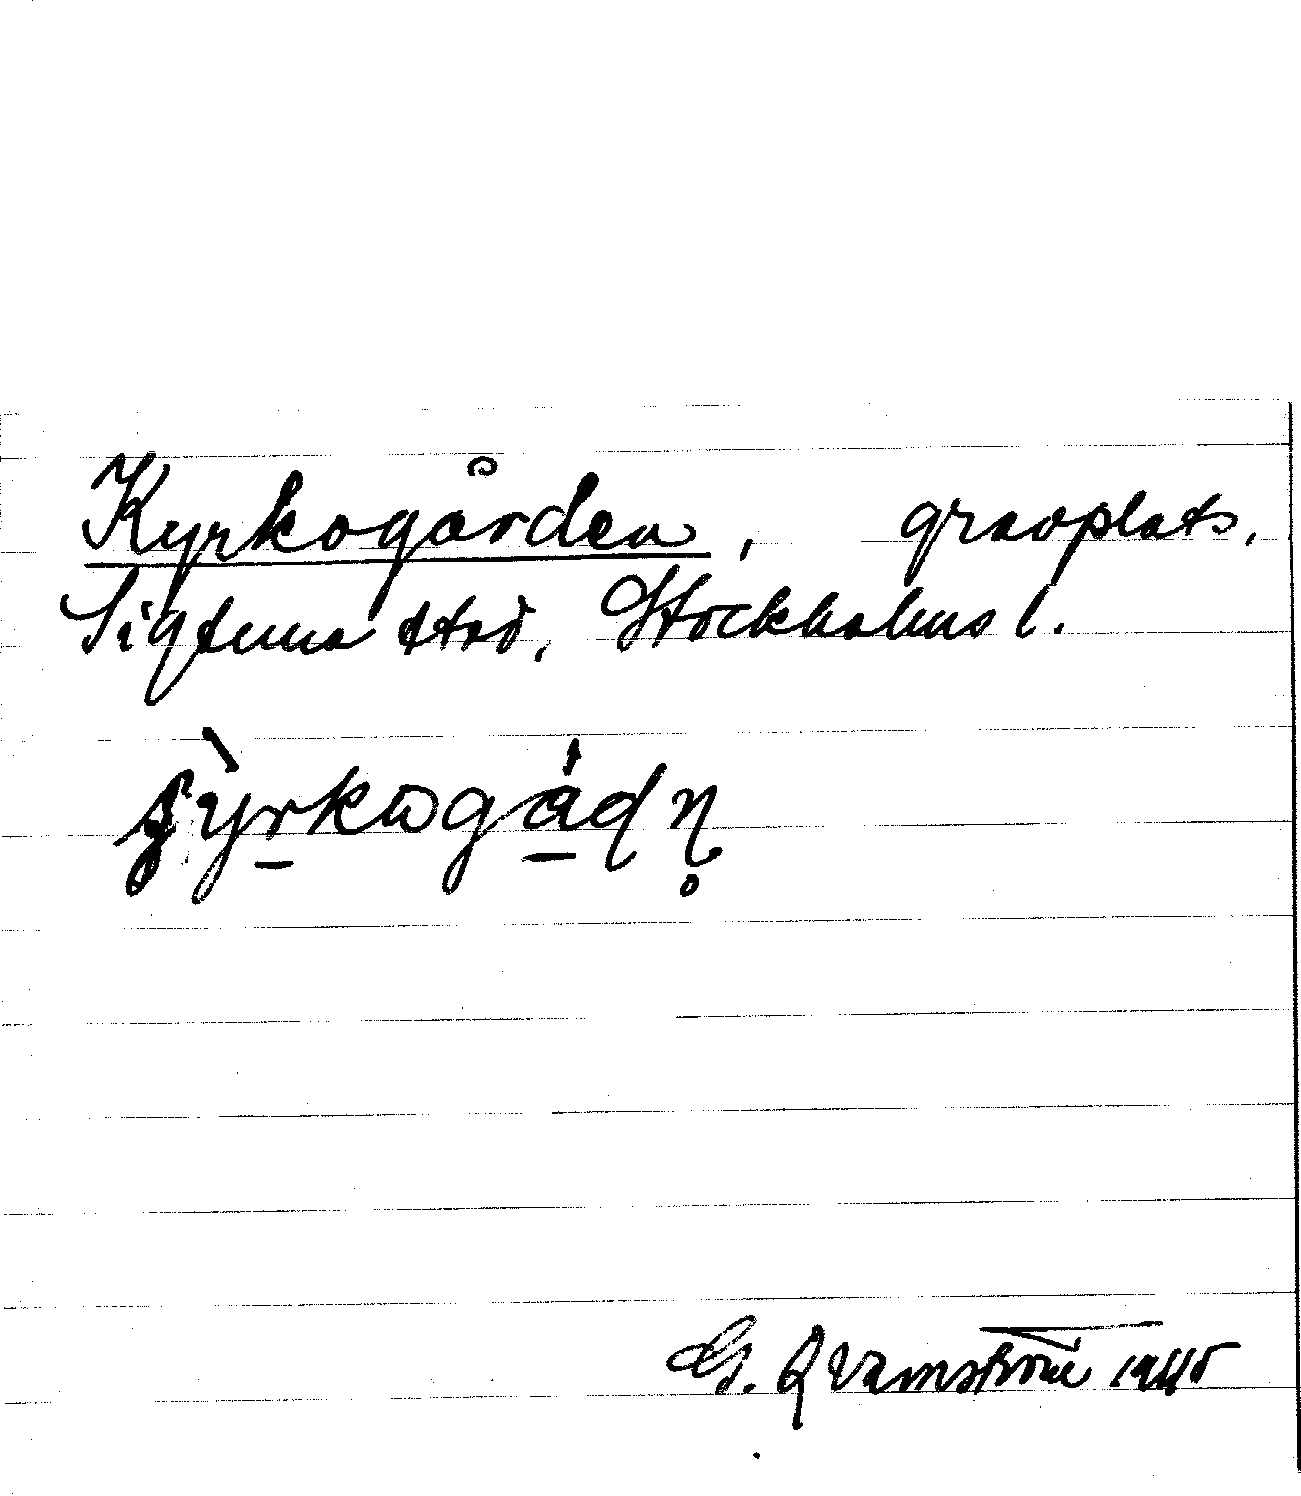 Kyrkogården, gravplats,
Sigtuna stad, Stockholms l.
ʃỳrkωgádņ̥
G. Qvarnström 1945